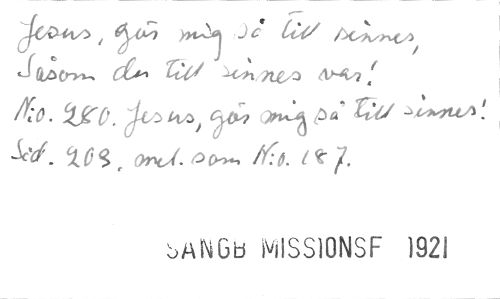 Jesus, gör mig så till sinnes,
Såsom du till sinnes var!
N:o. 280. Jesus, gör mig så till sinnes!
Sid. 203, mel. som N:o. 187.
SANGB MISSIONSF 1921